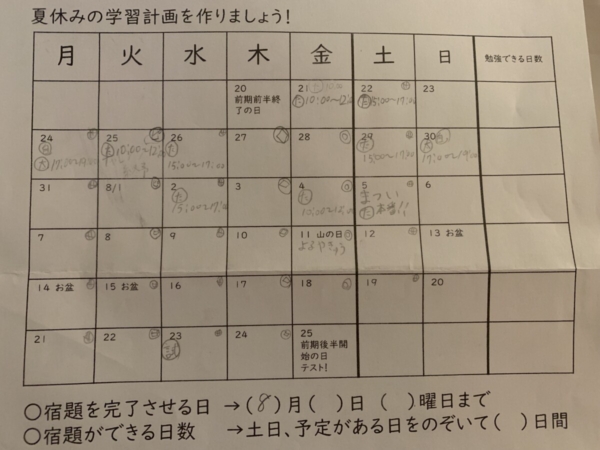 夏休みの学習計画を作りましょう!
月 火 水 木 金 土 日 勉強できる日数
20 21 22 23
前期前半終
了の日
10:00〜12:00 15:00〜17:00
24 25 26 27 28 29 30
17:00〜19:00 10:00〜12:00 15:00〜17:00 15:00〜17:00 17:00〜19:00
31 8/1 2 3 4 5 6
15:00〜17:00 まつい
本番!!
7 8 9 10 11 山の日 12 13 お盆
14 お盆 15 お盆 16 17 18 19 20
21 22 23 24 25
前期後半開
始の日
テスト!
〇宿題を完了させる日 →(8)月( )日( )曜日まで
〇宿題ができる日数 →土日、予定がある日をのぞいて( )日間